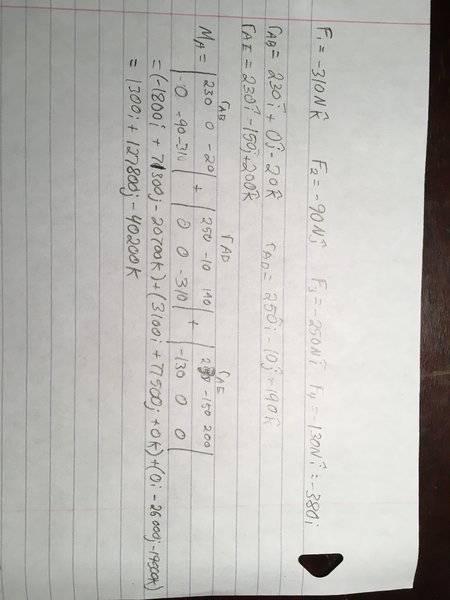 F₁ = -310Nk̂ F₂ = -90Nĵ F₃ = -250Nî F₄ = -130Nî = -380i
r_AB = 230î + 0ĵ - 20k̂ r_AD = 250î - 10ĵ - 190k̂
r_AE = 230î - 150ĵ + 200k̂
r_AB r_AD r_AE
M_A = |230 0 -20| + |250 -10 190| + |230 -150 200|
|-0 -90 -310| |0 0 -310| |-130 0 0|
= (-1800i + 71300j - 20700k) + (3100i + 77500j + 0k) + (0i - 26000j - 19500k)
= 1300i + 127800j - 40200k